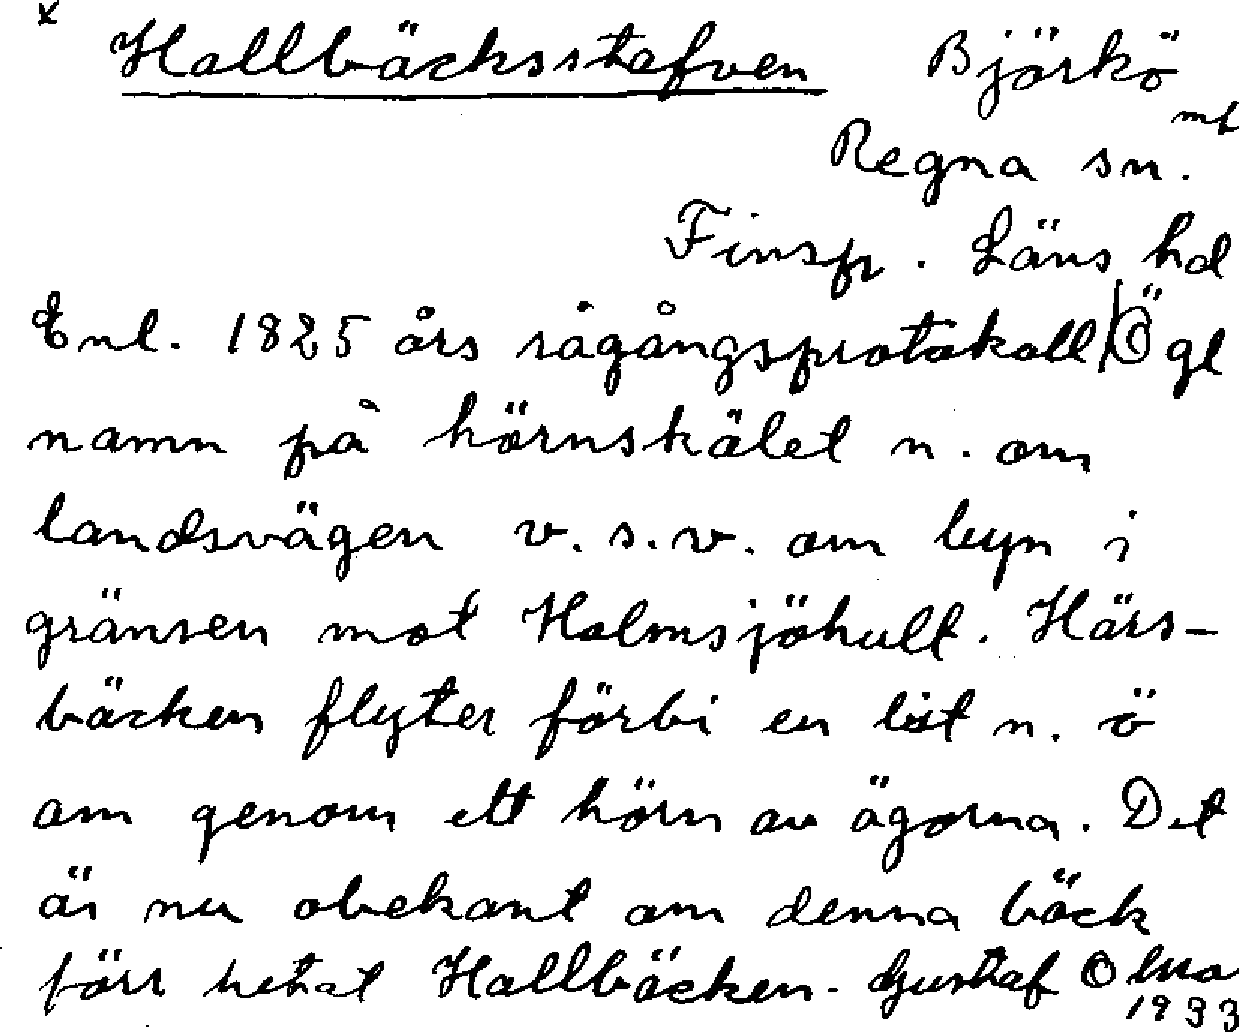 x Hallbäcksstafven Björkö
mt
Regna sn.
Finsp. Läns hd
Enl. 1825 års rågångsprotokoll Ögl
namn på hörnskälet n. om
landsvägen v.s.v. om byn i
gränsen mot Holmsjöhult. Härs-
bäcken flyter förbi en bit n. ö
om genom ett hörn av ägorna. Det
är nu obekant om denna bäck
förr hetat Hallbäcken. Gustaf
1933